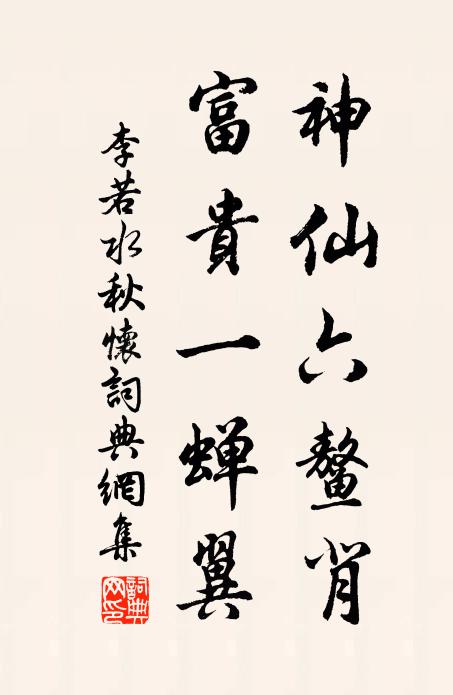 神仙六鰲背
富貴一蝉翼
李若水秋懷詞典網集
詞典网印